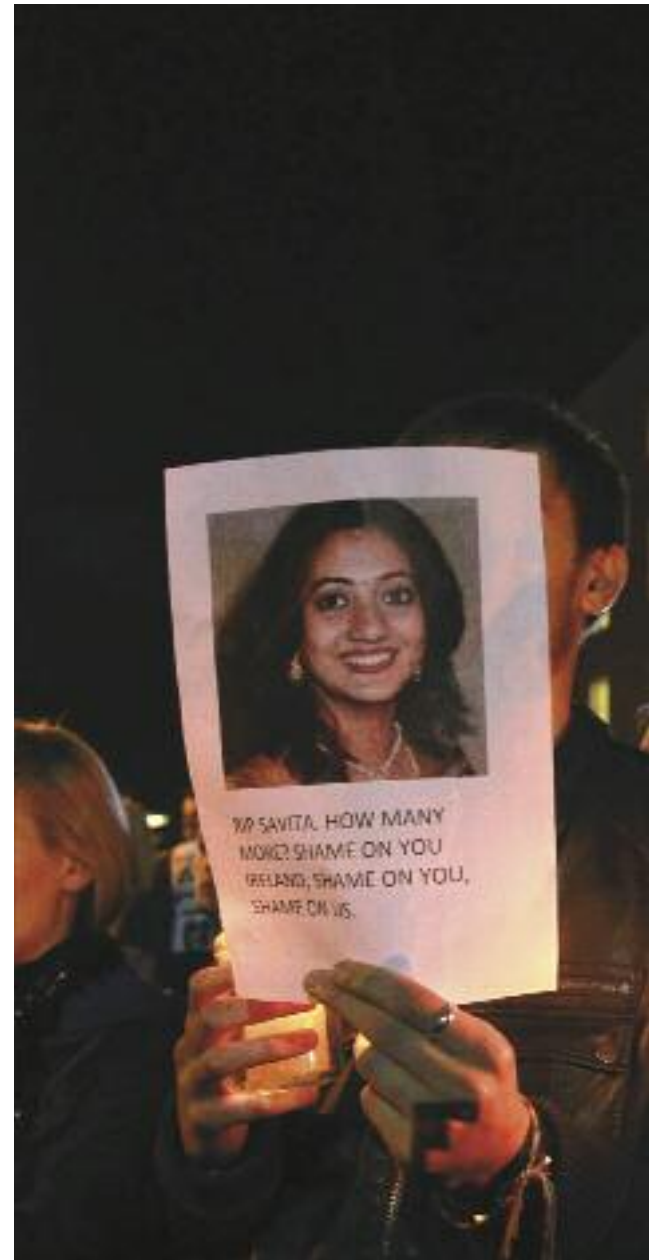 RIP SAVITA. HOW MANY
MORE? SHAME ON YOU
IRELAND, SHAME ON YOU,
SHAME ON US.